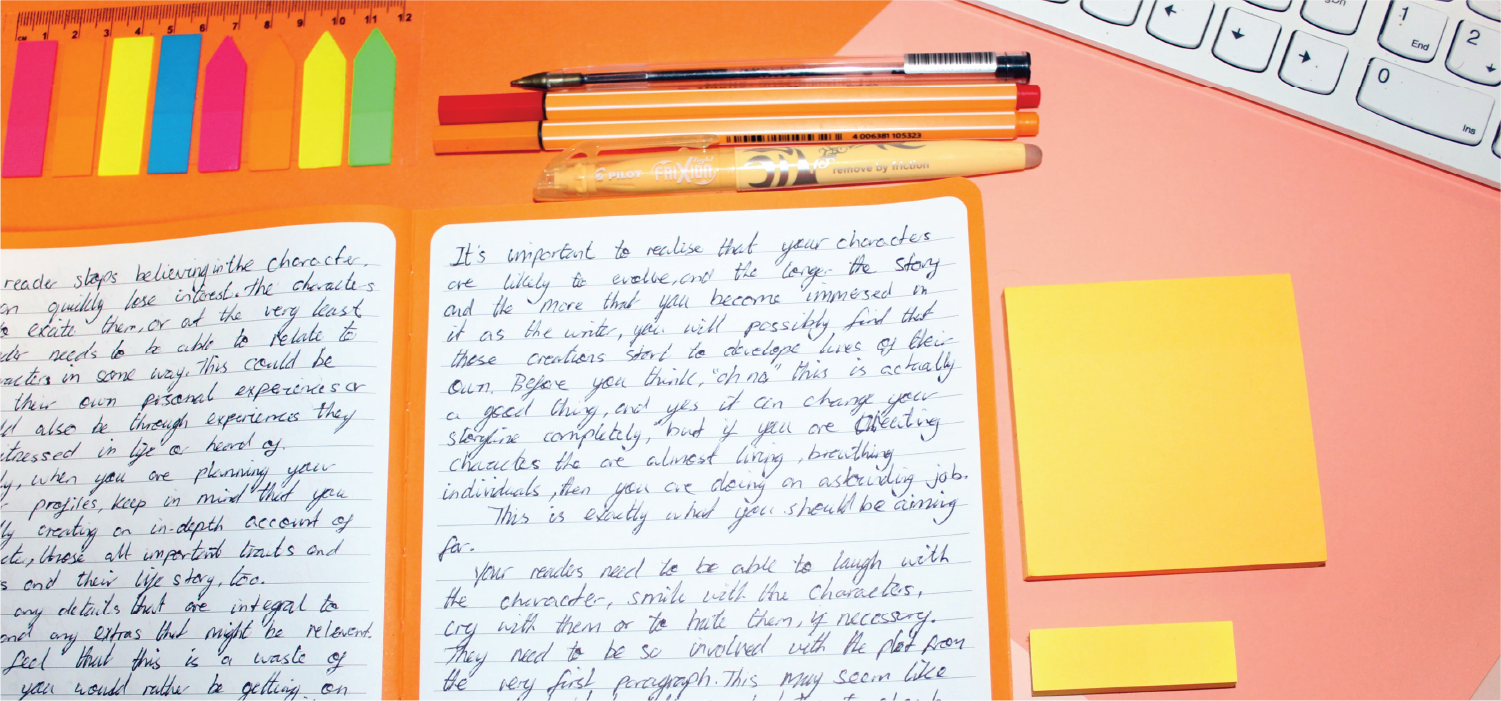 CM 1 2 3 4 5 6 7 8 9 10 11 12
1
End
2
0
Ins
4 006381 105323
PILOT FRIXION Light
remove by friction
reader stops believing in the character,
quickly lose interest. The characters
excite them, or at the very least
needs to be able to relate to
in some way. This could be
their own personal experiences or
also be through experiences they
in life or heard of.
, when you are planning your
profiles, keep in mind that you
creating an in-depth account of
, those all important traits and
and their life story, too.
any details that are integral to
and any extras that might be relevent.
feel that this is a waste of
you would rather be getting on
It's important to realise that your characters
are likely to evolve, and the longer the story
and the more that you become immersed in
it as the writer, you will possibly find that
these creations start to develope lives of their
own. Before you think, "oh no" this is actually
a good thing, and yes it can change your
storyline completely, but if you are creating
characters the are almost living, breathing
individuals, then you are doing an astounding job.
This is exactly what you should be aiming
for.
Your readers need to be able to laugh with
the character, smile with the characters,
cry with them or to hate them, if necessary.
They need to be so involved with the plot from
the very first paragraph. This may seem like